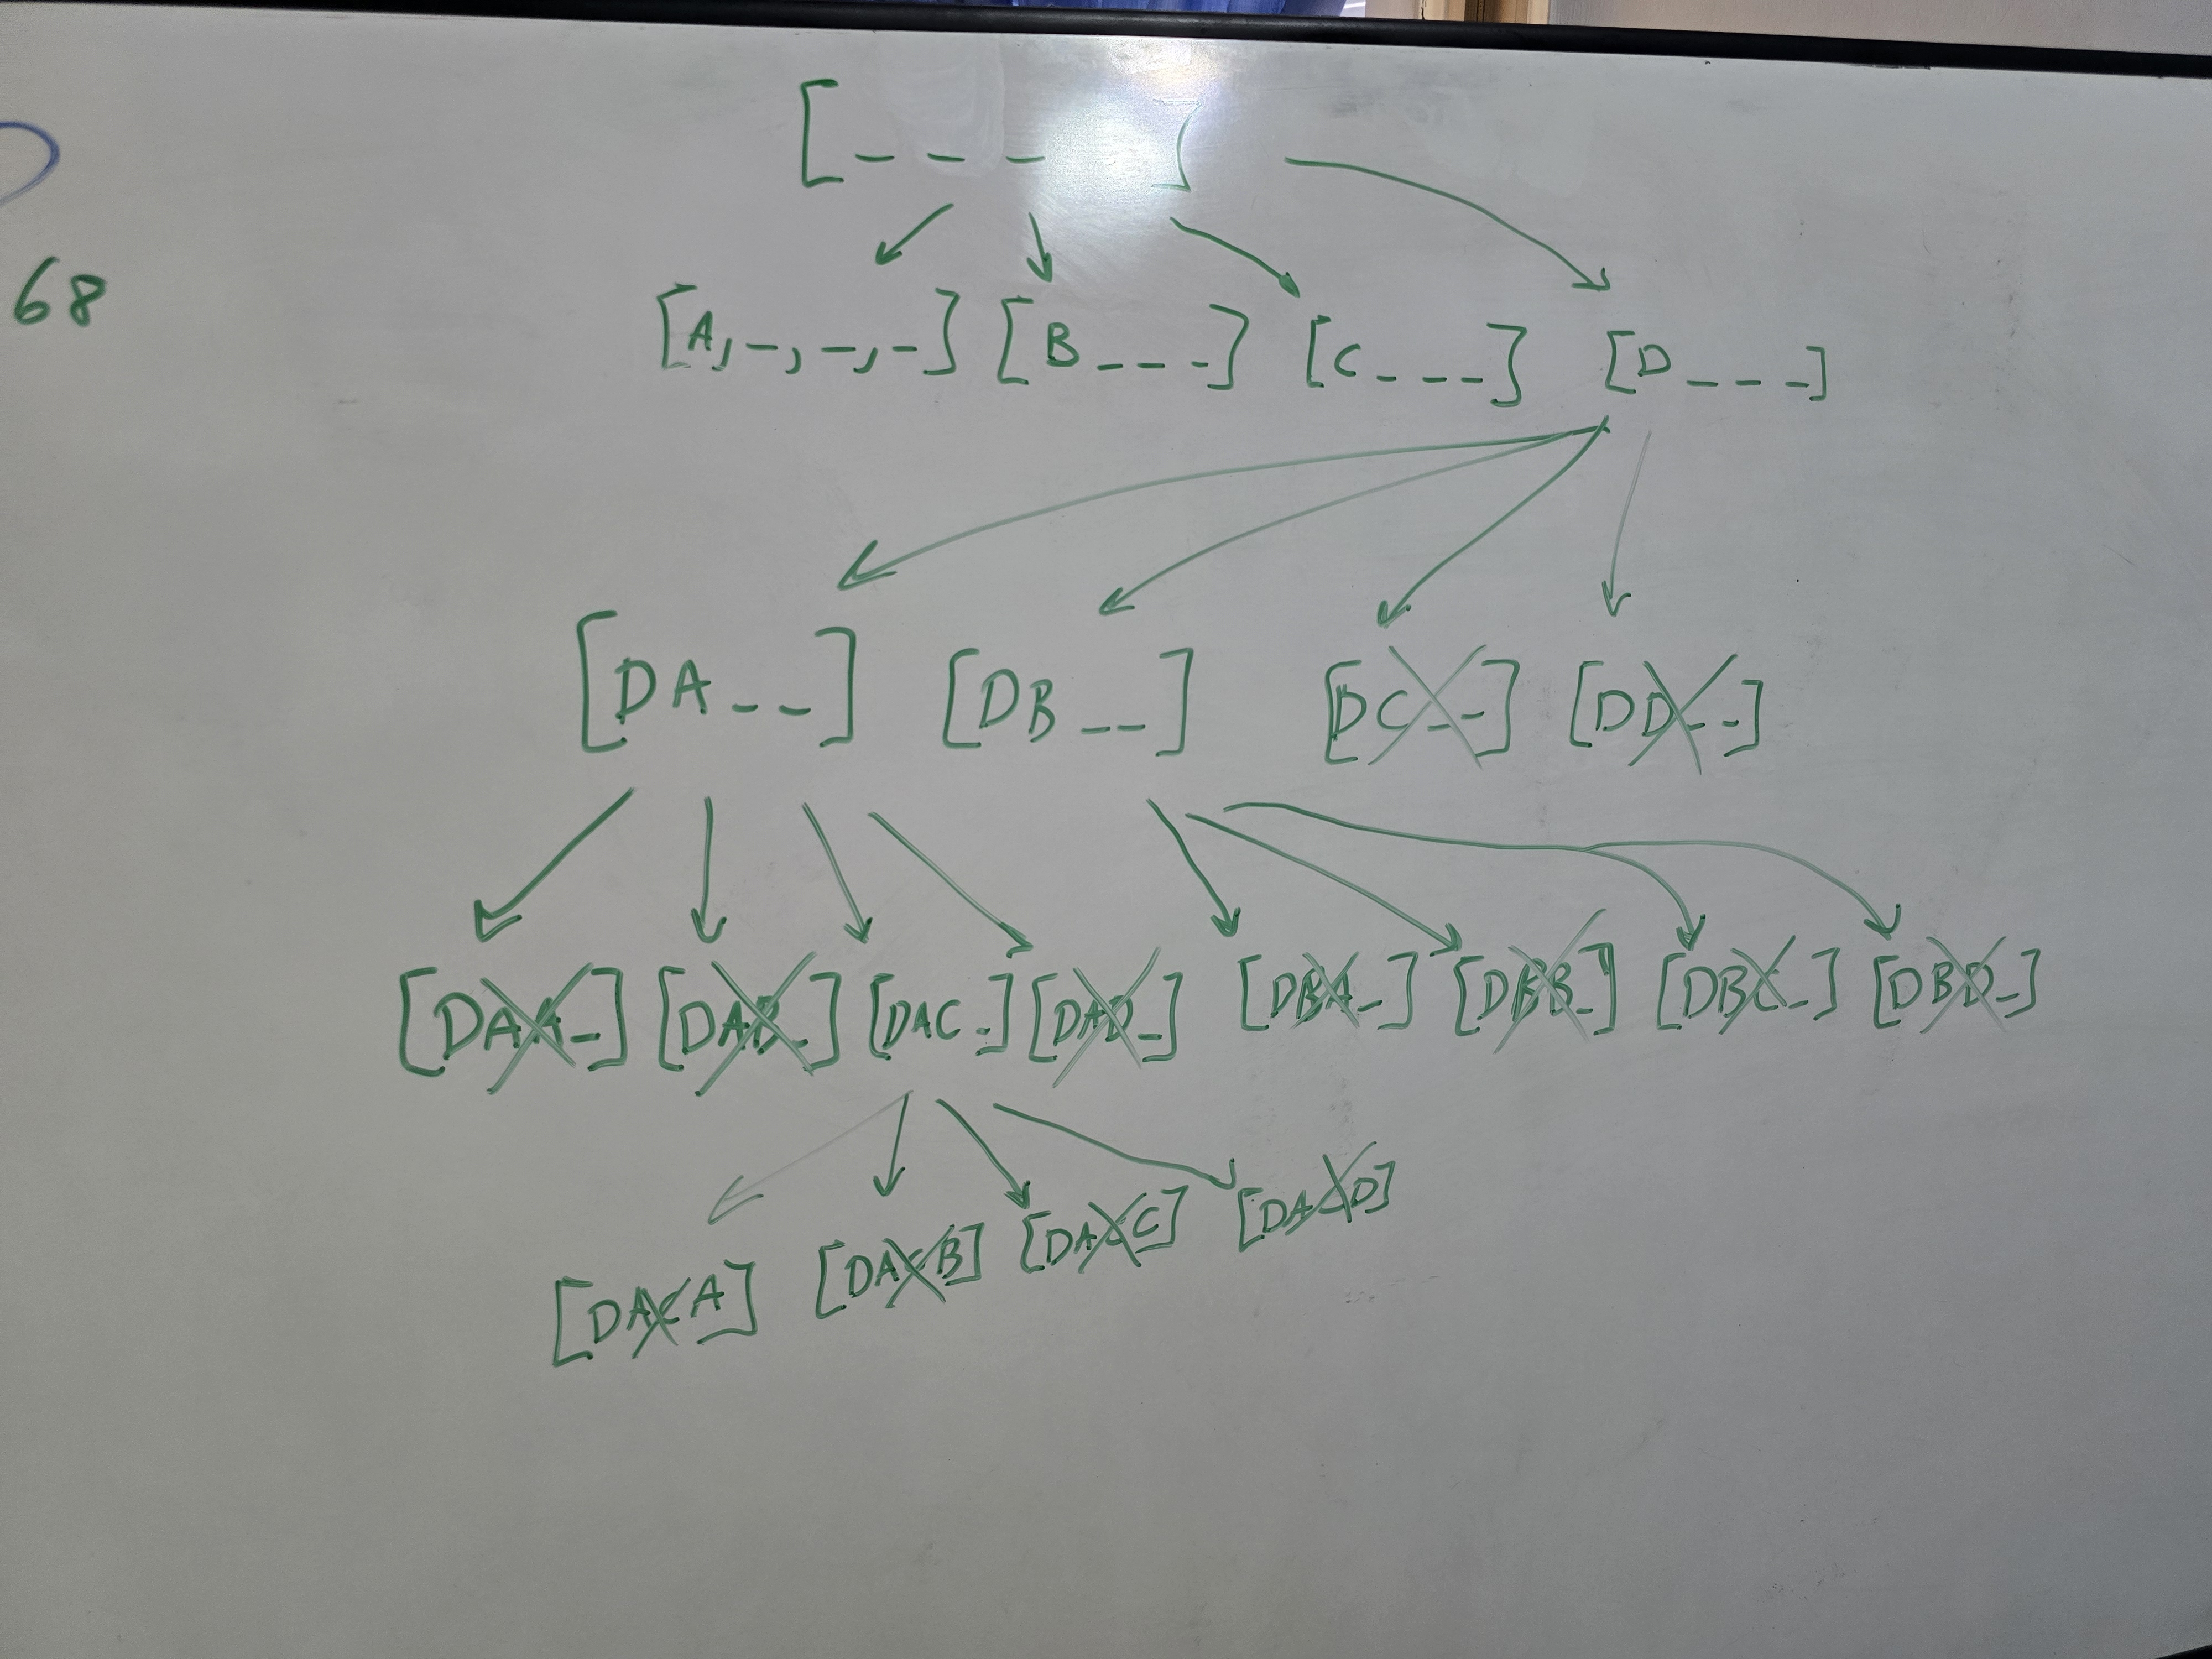 [_ _ _ ]
68
[A,_,_,_] [B _ _ _] [C _ _ _] [D _ _ _]
[DA _ _] [DB _ _] [DC _ _] [DD _ _]
[DAA_] [DAB_] [DAC_] [DAD_] [DBA_] [DBB_] [DBC_] [DBD_]
[DACA] [DACB] [DACC] [DACD]